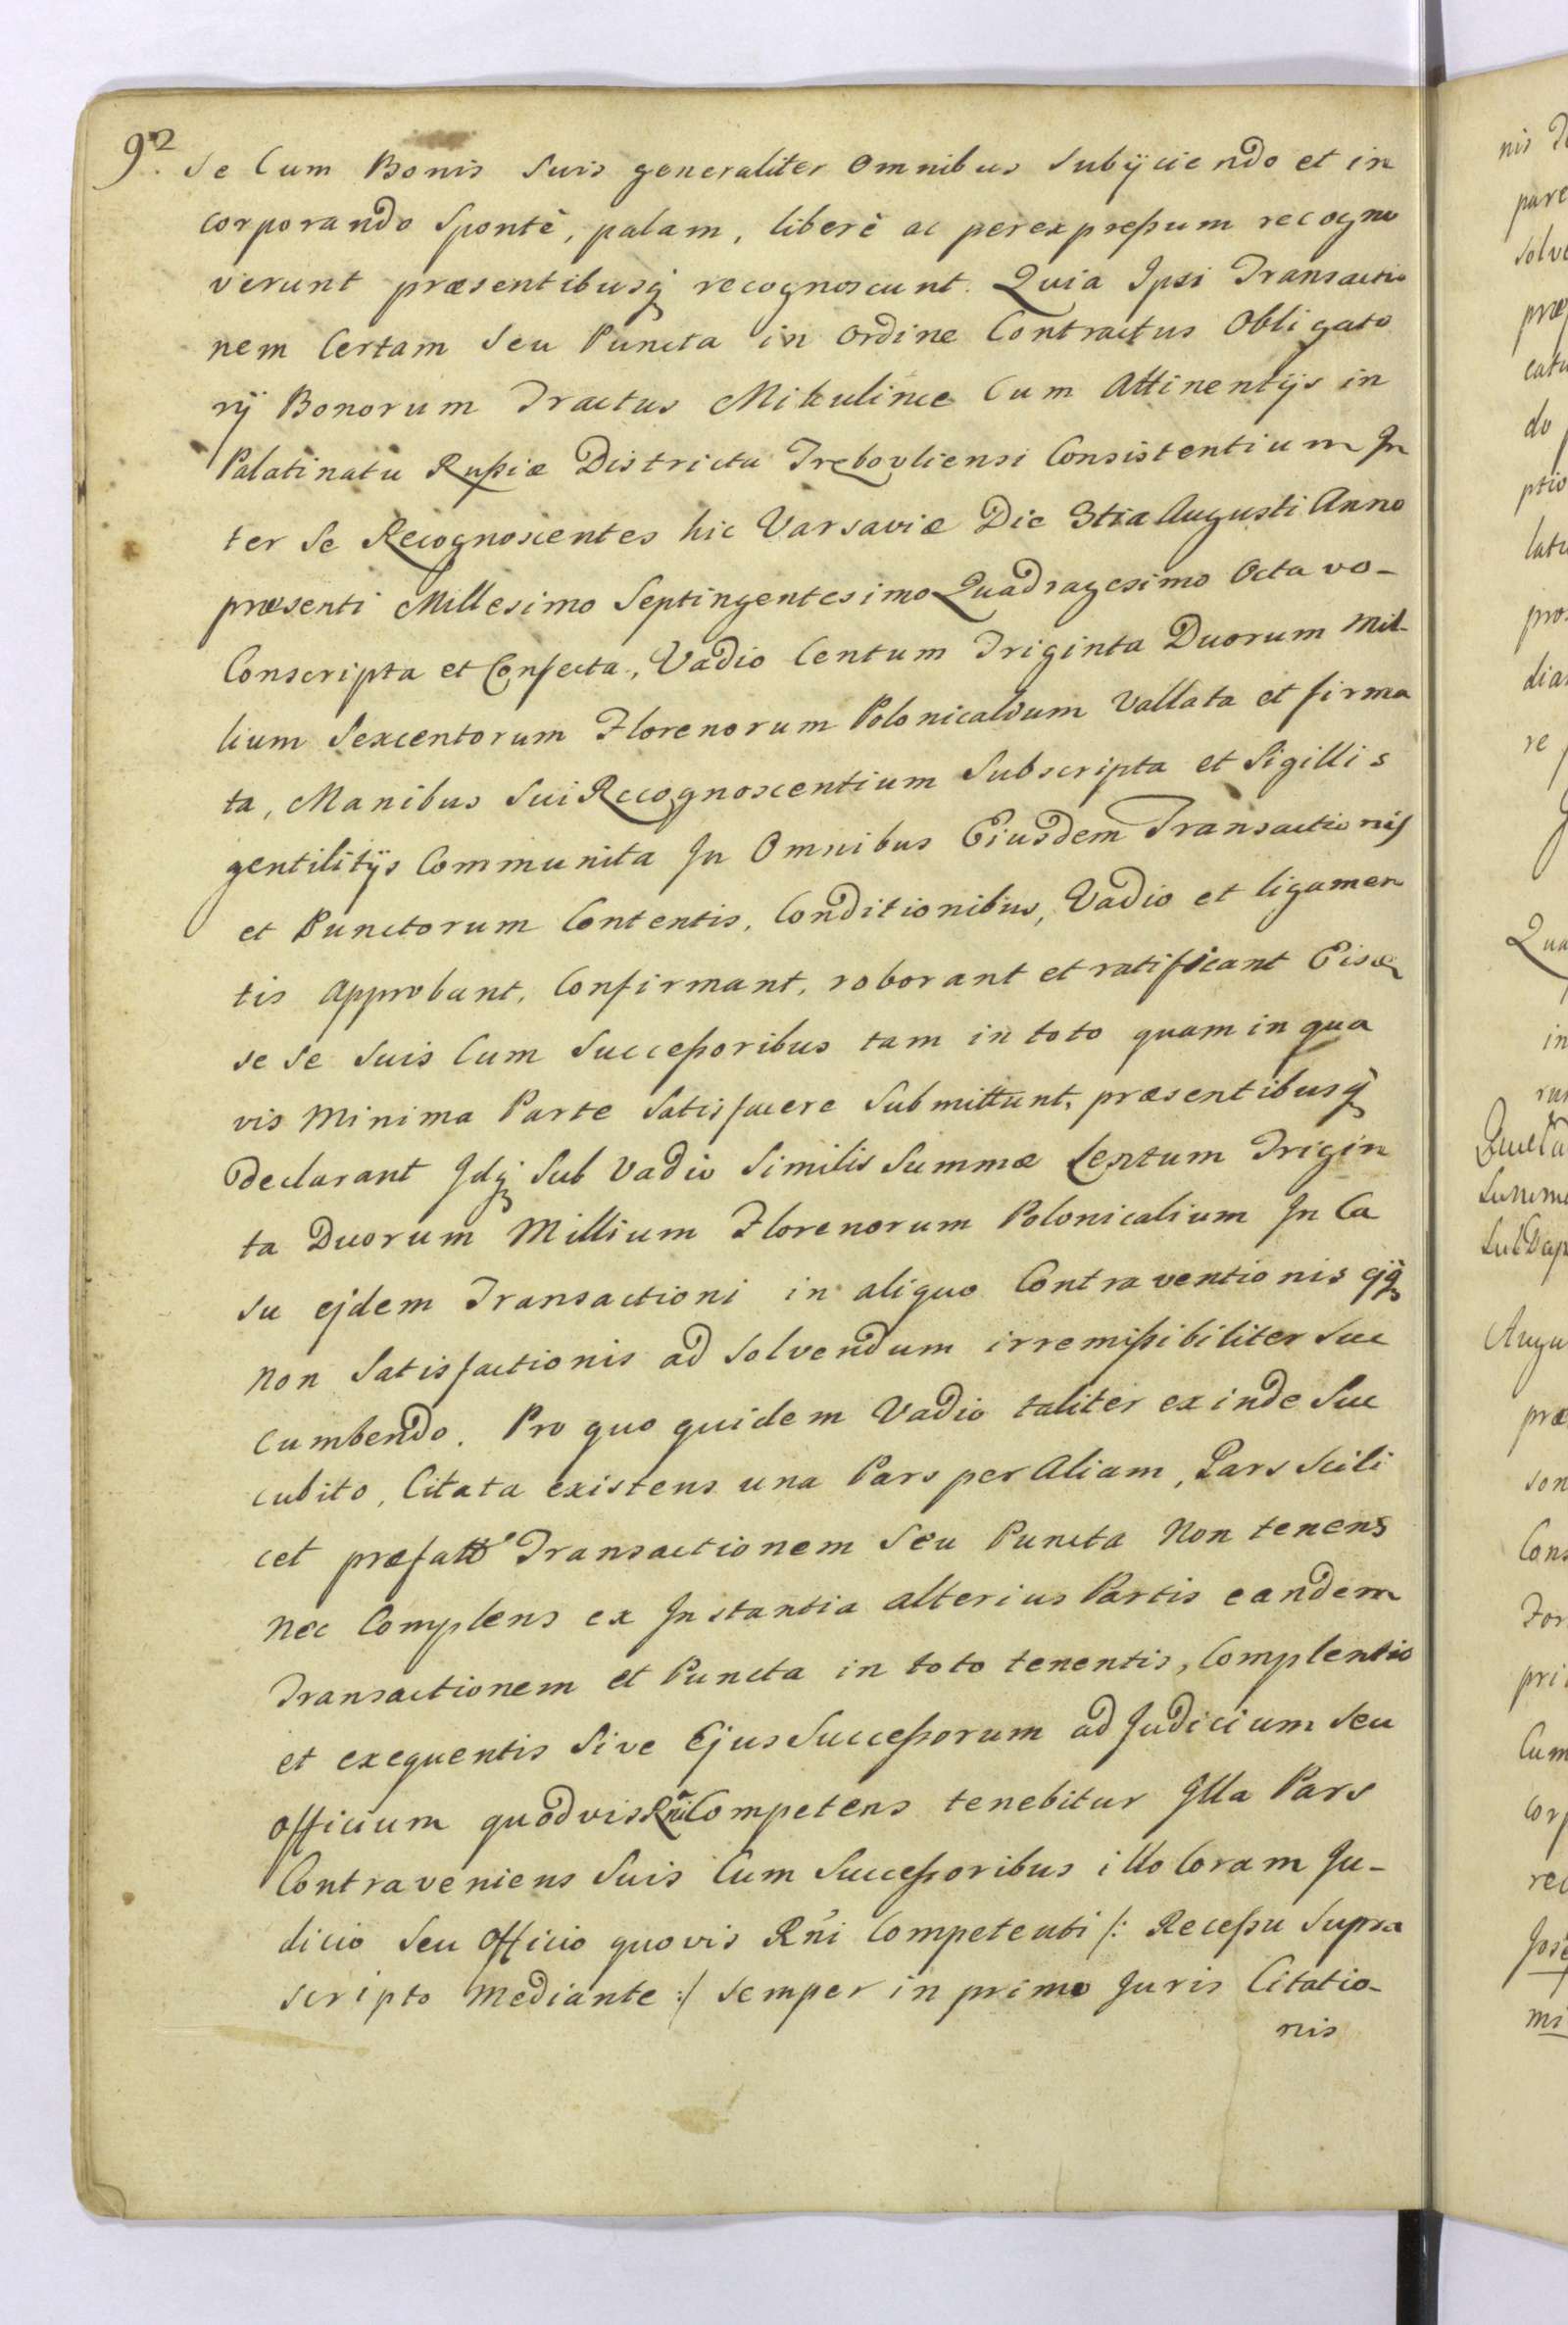 92.
Se Cum Bonis Suis generaliter Omnibus Subÿciendo et in
corporando Spontè, palam, liberè ac perexpreßum recogno
verunt præsentibusq recognoscunt. Quia Ipsi Transactio
nem Certam Seu Puncta in Ordine Contractus Obligato
rÿ Bonorum Tractus Mikulince Cum Attinentÿs in
Palatinatu Rußiæ Districtu Trebovliensi Consistentium In
ter Se Recognoscentes hic Varsaviæ Die 3tia Augusti Anno
præsenti Millesimo Septingentesimo Quadragesimo Octavo-
Conscripta et Confecta, Vadio Centum Triginta Duorum Mil-
lium Sexcentorum Florenorum Polonicalium Vallata et firma
ta, Manibus Sui Recognoscentium Subscripta et Sigillis
gentilitÿs Communita In Omnibus Eiusdem Transactionis
et Punctorum Contentis, Conditionibus, Vadio et ligamen
tis Approbant, Confirmant, roborant et ratificant Eisq
se se Suis Cum Succeßoribus tam in toto quam in qua
vis Minima Parte Satisfacere Submittunt, præsentibusq
Declarant Idq Sub Vadio Similis Summæ Centum Trigin
ta Duorum Millium Florenorum Polonicalium In Ca
su ejdem Transactioni in aliquo Contraventionis ejq
non Satisfactionis ad Solvendum irremißibiliter Suc
cumbendo. Pro quo quidem Vadio taliter exinde Suc
cubito, Citata existens una Pars per Aliam, Pars Scili
cet præfatt Transactionem Seu Puncta Non tenens
nec Complens ex Instantia alterius Partis eandem
Transactionem et Puncta in toto tenentis, Complentis
et exequentis Sive Ejus Succeßorum ad Judicium Seu
Officium quodvis Rni Competens tenebitur Illa Pars
Contraveniens Suis Cum Succeßoribus illo Coram Ju-
dicio Seu Officio quovis Rñi Competenti /: Receßu Supra
scripto Mediante :/ Semper in primo Juris Citatio-
nis